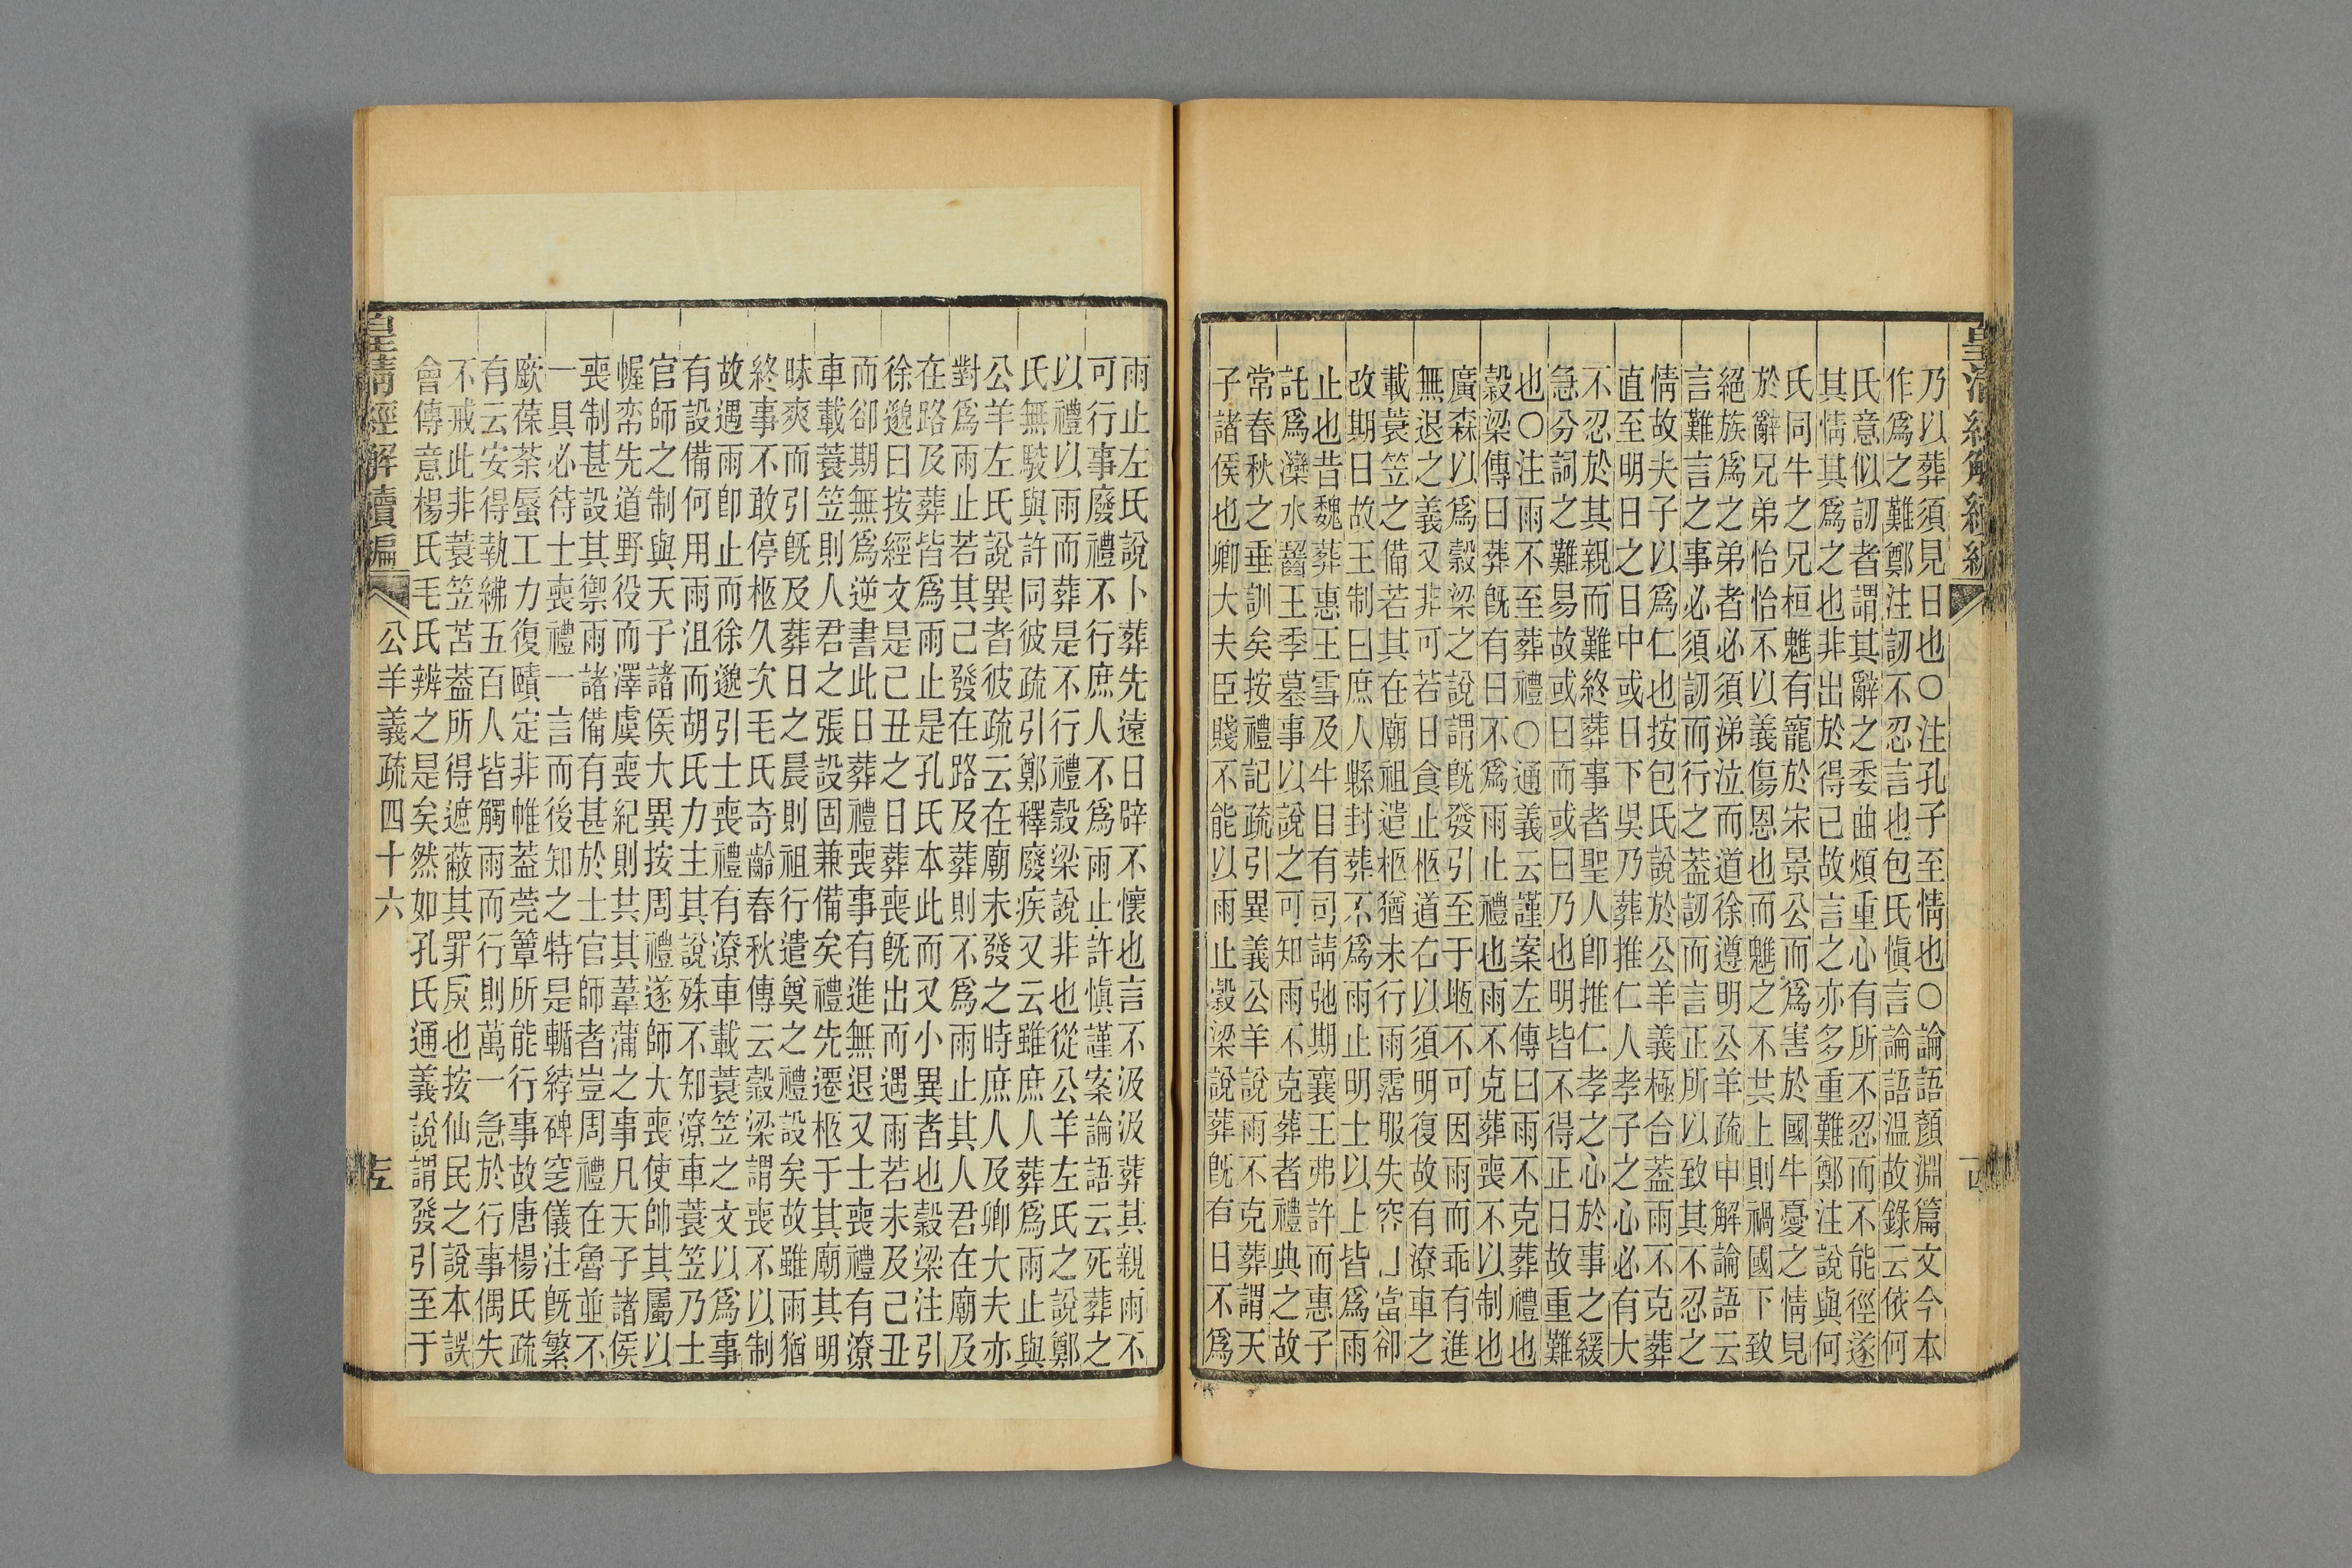 皇清經解續編
乃以葬須見日也○注孔子至情也○論語顏淵篇文今本
作爲之難鄭注訒不忍言也包氏愼言論語温故錄云依何
氏意似訒者謂其辭之委曲煩重心有所不忍而不能徑遂
其情其爲之也非出於得己故言之亦多重難鄭注說與何
氏同牛之兄桓魋有寵於宋景公而爲害於國牛憂之情見
於辭兄弟怡怡不以義傷恩也而魋之不共上則禍國下致
絕族爲之弟者必須涕泣而道徐遵明公羊疏申解論語云
言難言之事必須訒而行之葢訒而言正所以致其不忍之
情故夫子以爲仁也按包氏說於公羊義極合葢雨不克葬
直至明日之日中或日下吳乃葬推仁人孝子之心必有大
不忍於其親而難終葬事者聖人卽推仁孝之心於事之緩
急分詞之難易故或曰而或曰乃也明皆不得正日故重難
也○注雨不至葬禮○通義云謹案左傳曰雨不克葬禮也
穀梁傳曰葬旣有日不爲雨止禮也雨不克葬喪不以制也
廣森以爲穀梁之說謂旣發引至于堩不可因雨而乖有進
無退之義又非可若日食止柩道右以須明復故有潦車之
載蓑笠之備若其在廟祖遣柩猶未行雨霑服失容當卻
改期日故王制曰庶人縣封葬不爲雨止明士以上皆爲雨
止也昔魏葬惠王雪及牛目有司請弛期襄王弗許而惠子
託爲灓水齧王季墓事以說之可知雨不克葬者禮典之故
常春秋之垂訓矣按禮記疏引異義公羊說雨不克葬謂天
子諸侯也卿大夫臣賤不能以雨止穀梁說葬旣有日不爲
雨止左氏說卜葬先遠日辟不懷也言不汲汲葬其親雨不
可行事廢禮不行庶人不爲雨止許愼謹案論語云死葬之
以禮以雨而葬是不行禮穀梁說非也從公羊左氏之說鄭
氏無駮與許同彼疏引鄭釋廢疾又云雖庶人葬爲雨止與
公羊左氏說異者彼疏云在廟未發之時庶人及卿大夫亦
對爲雨止若其己發在路及葬則不爲雨止其人君在廟及
在路及葬皆爲雨止是孔氏本此而又小異者也穀梁注引
徐邈曰按經文是己丑之日葬喪旣出而遇雨若未及己丑
而卻期無爲逆書此日葬禮喪事有進無退又士喪禮有潦
車載蓑笠則人君之張設固兼備矣禮先遷柩于其廟其明
昧爽而引旣及葬日之晨則祖行遣奠之禮設矣故雖雨猶
終事不敢停柩久次毛氏奇齡春秋傳云穀梁謂喪不以制
故遇雨卽止而徐邈引士喪禮有潦車載蓑笠之文以爲事
有設備何用雨沮而胡氏力主其說殊不知潦車蓑笠乃士
官師之制與天子諸侯大異按周禮遂師大喪使帥其屬以
幄帟先道野役而澤虞喪紀則共其葦蒲之事凡天子諸侯
喪制甚設其禦雨諸備有甚於士官師者豈周禮在魯並不
一具必待士喪禮一言而後知之特是輴綍碑窆儀注旣繁
廞葆荼蜃工力復賾定非帷葢莞簟所能行事故唐楊氏疏
有云安得執紼五百人皆觸雨而行則萬一急於行事偶失
不戒此非蓑笠苫葢所得遮蔽其罪戾也按仙民之說本誤
會傳意楊氏毛氏辨之是矣然如孔氏通義說謂發引至于
皇清經解續編 公羊義疏四十六